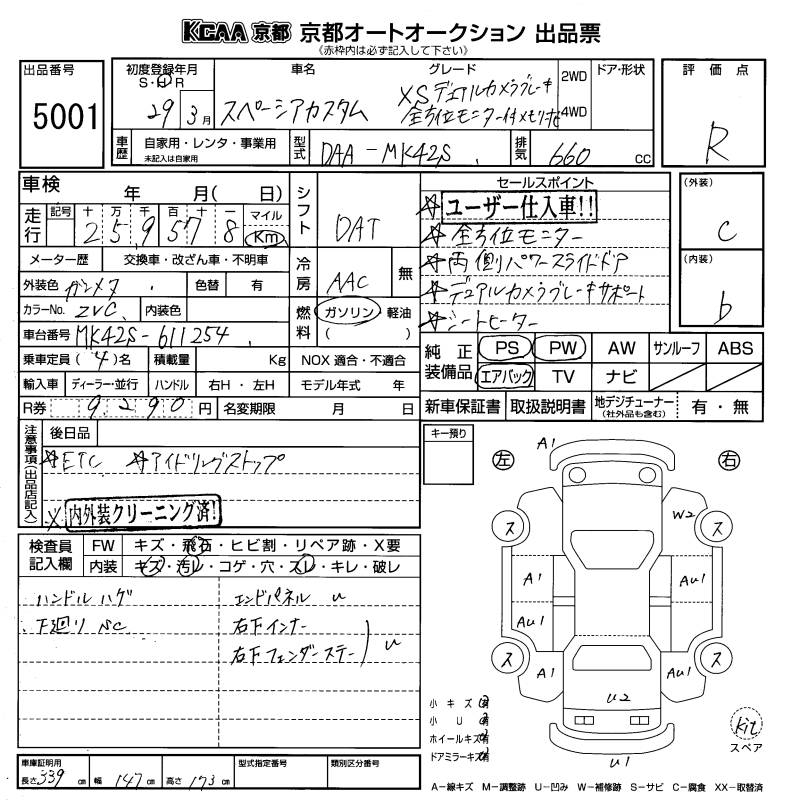 KCAA 京都 京都オートオークション 出品票
(赤枠内は必ず記入して下さい)
出品番号
5001
初度登録年月
S・H・R
29年 3月
車名
スペーシアカスタム
グレード
XSデュアルカメラブレーキ
全方位モニター付メモリナビ
2WD
4WD
ドア・形状
評価点
R
車歴
自家用・レンタ・事業用
未記入は自家用
型式
DAA-MK42S
排気
660 CC
車検 年 月( 日)
走行
記号 十 万 千 百 十 一 マイル
2 5 9 5 7 8 Km
メーター歴 交換車・改ざん車・不明車
外装色 ガンメタ 色替 有
カラーNo. ZVC 内装色
車台番号 MK42S-611254
乗車定員 (4)名 積載量 Kg
輸入車 ディーラー・並行 ハンドル 右H・左H
R券 9,290円 名変期限 月 日
シフト
DAT
冷房
AAC 無
燃料
ガソリン 軽油
( )
NOX 適合・不適合
モデル年式 年
セールスポイント
☆ユーザー仕入車!!
☆全方位モニター
☆両側パワースライドドア
☆デュアルカメラブレーキサポート
☆シートヒーター
(外装)
C
(内装)
b
純正装備品
PS PW AW サンルーフ ABS
エアバック TV ナビ
新車保証書 取扱説明書 地デジチューナー (社外品も含む) 有・無
注意事項(出品店記入)
後日品
☆ETC ☆アイドリングストップ
※内外装クリーニング済!
キー預り
検査員記入欄
FW キズ・飛石・ヒビ割・リペア跡・X要
内装 キズ・汚レ・コゲ・穴・スレ・キレ・破レ
ハンドルハゲ
下廻りSC
エンドパネル U
右下インナー
右下フェンダーステー
U
左
右
A1
W2
ス
ス
A1
AU1
AU1
ス
ス
A1
AU1
U2
U1
小キズ有
小U有
ホイールキズ有
ドアミラーキズ有
Kit
スペア
車庫証明用
長さ339cm 幅147cm 高さ173cm
型式指定番号
類別区分番号
A-線キズ M-調整跡 U-凹み W-補修跡 S-サビ C-腐食 XX-取替済